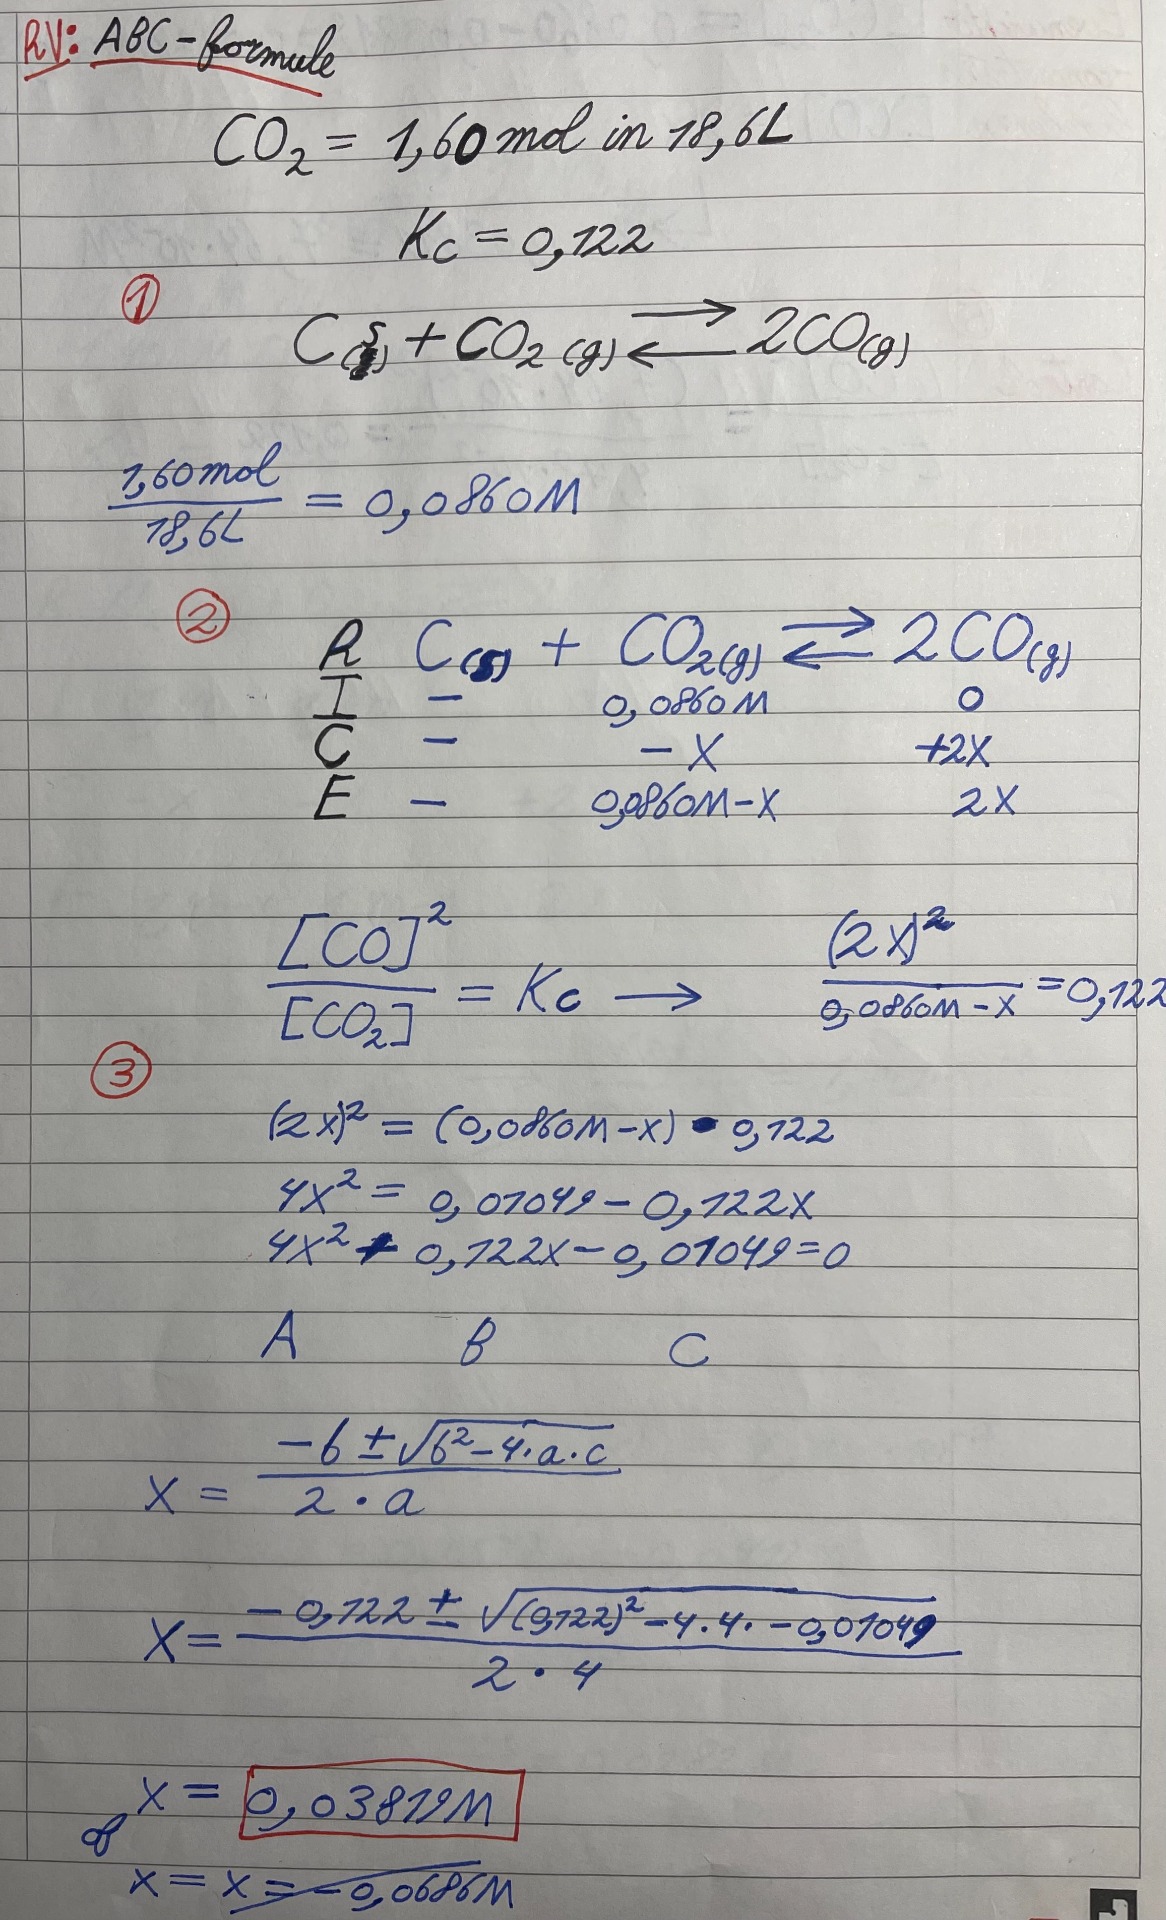 RV: ABC-formule
CO₂ = 1,60 mol in 18,6L
Kc = 0,122
①
C(s) + CO₂(g) ⇄ 2CO(g)
1,60 mol / 18,6L = 0,0860M
②
R C(s) + CO₂(g) ⇄ 2CO(g)
I - 0,0860M 0
C - -X +2X
E - 0,0860M-X 2X
[CO]² / [CO₂] = Kc → (2X)² / 0,0860M-X = 0,122
③
(2X)² = (0,0860M-X) • 0,122
4X² = 0,01049 - 0,122X
4X² + 0,122X - 0,01049 = 0
A B C
X = -b ± √b²-4·a·c / 2·a
X = -0,122 ± √(0,122)²-4·4·-0,01049 / 2·4
X = 0,03819M
of
X = X = -0,0686M